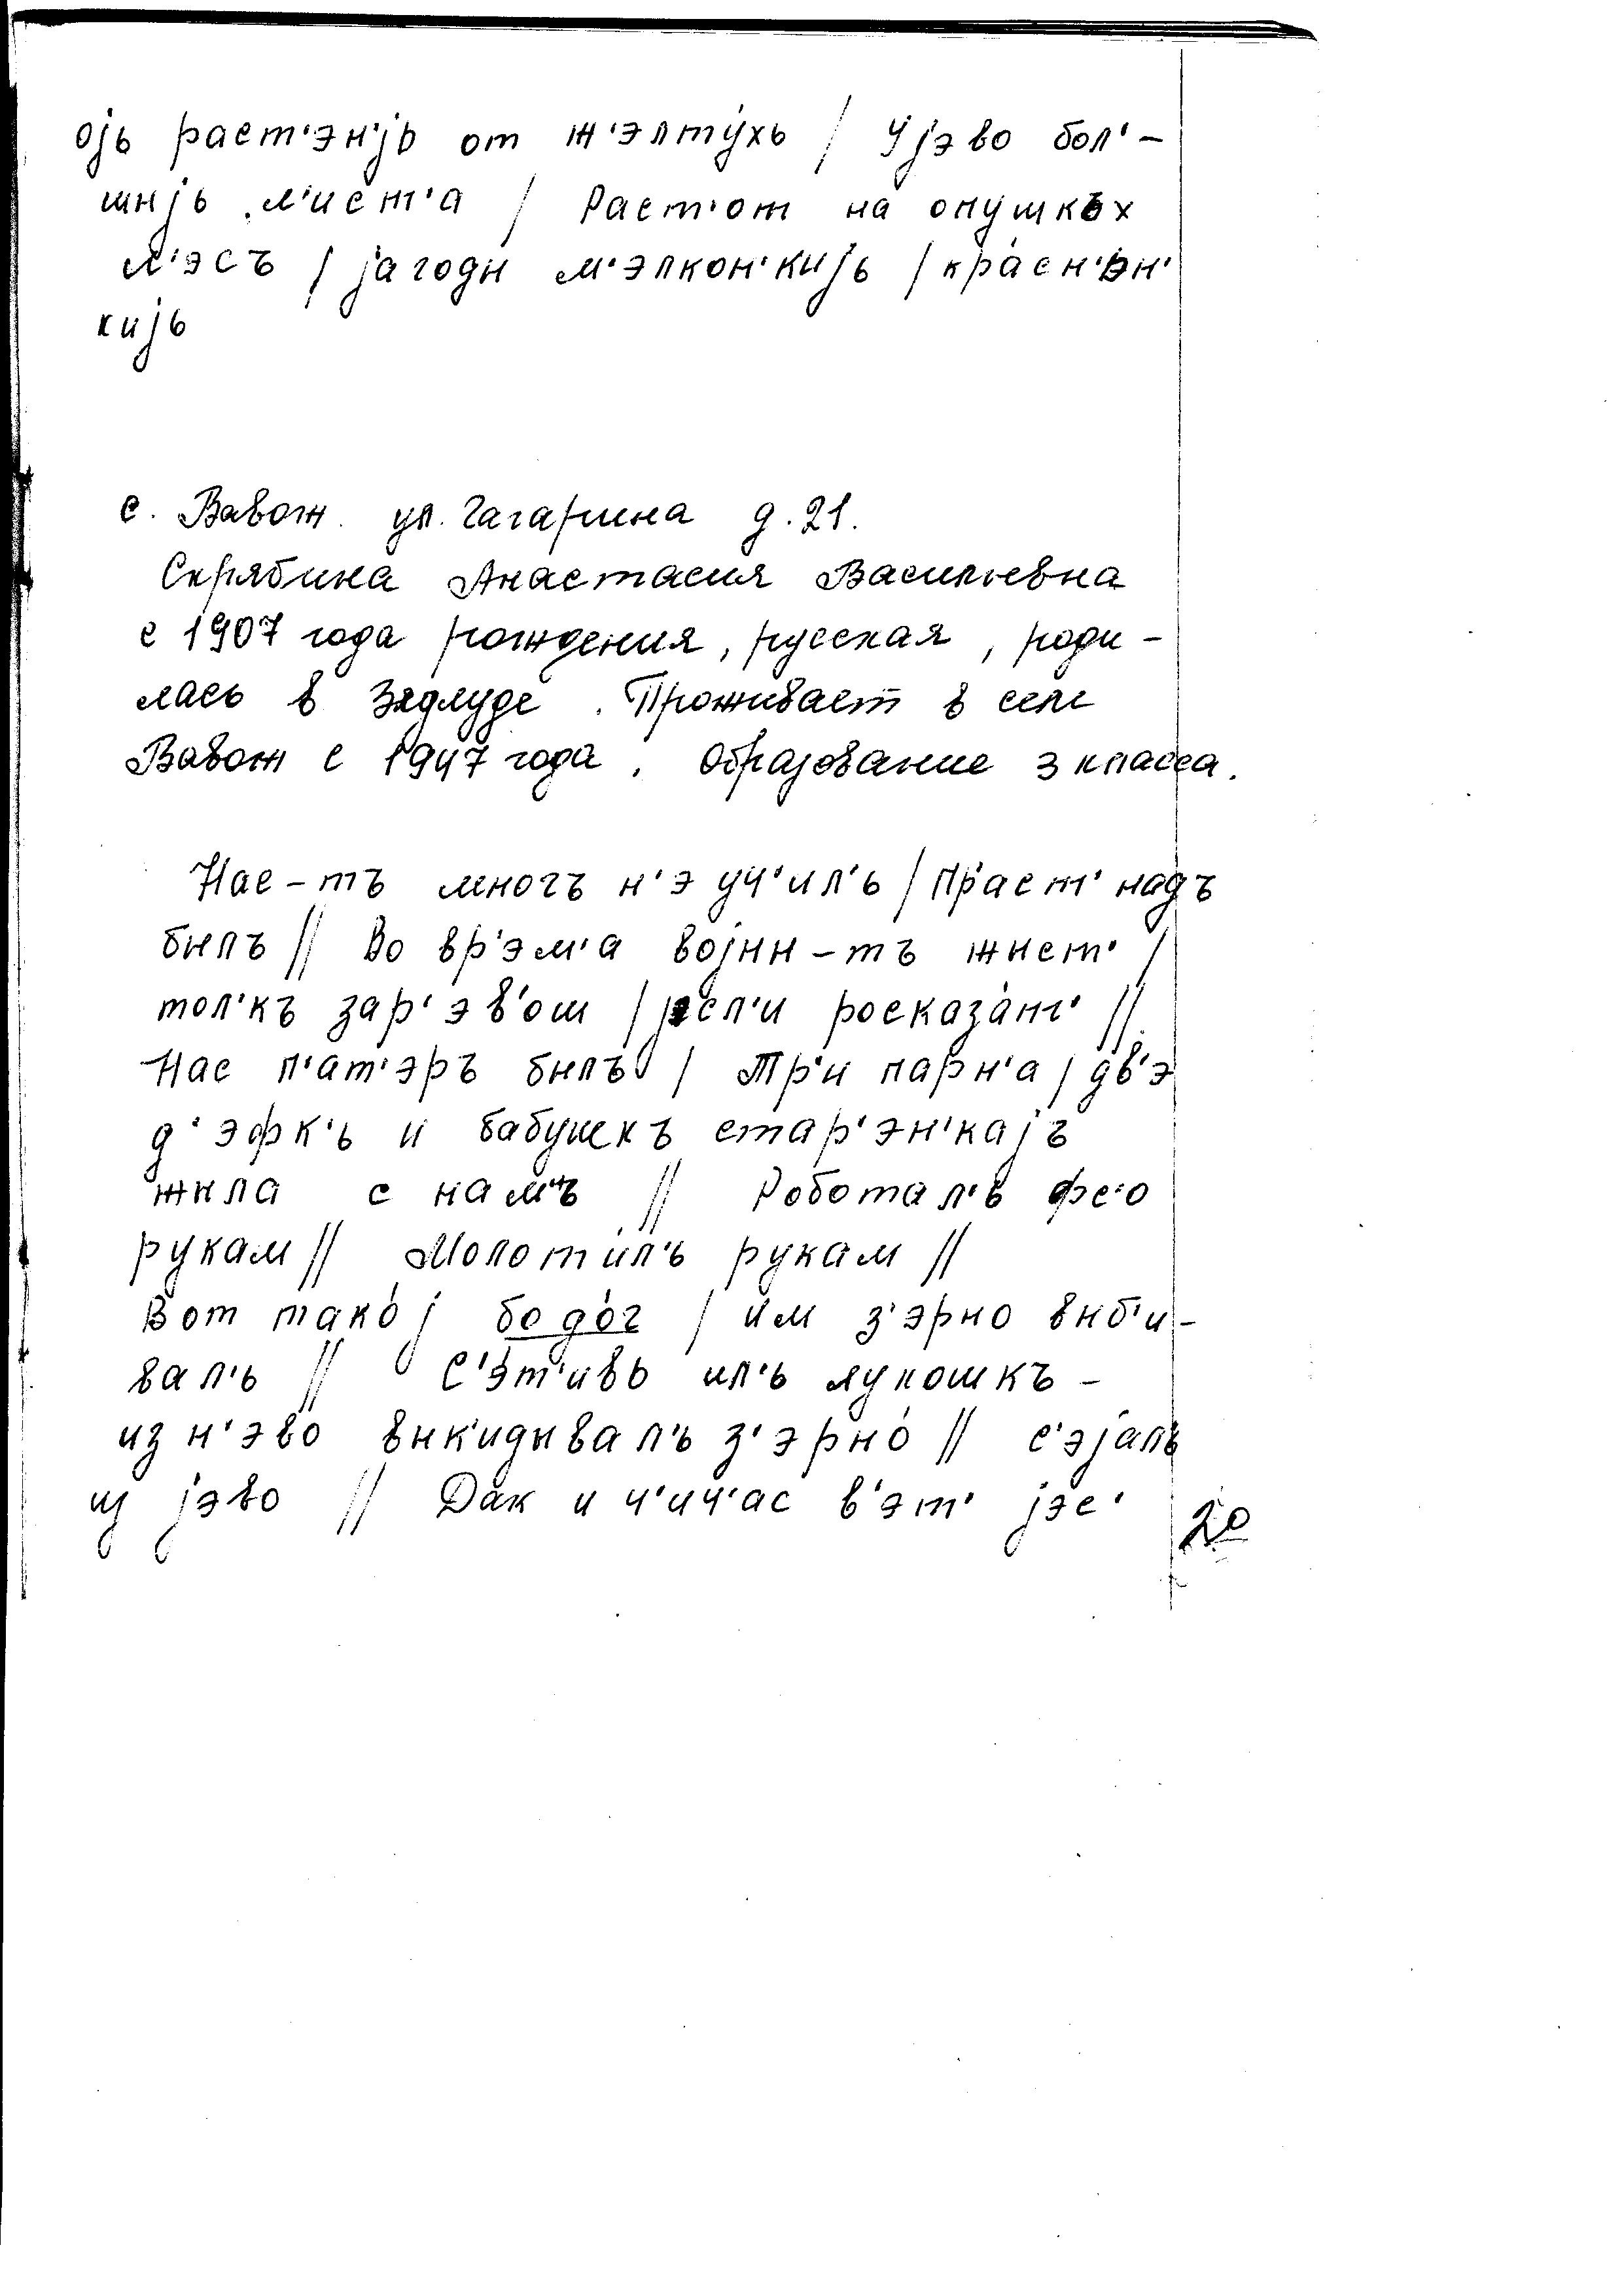 ојь раст'эн'јь от ж'элту́хь / У јэво бол'-
шыјь л'ист'а / Раст'от на опушкъх
л'эсъ / јагоды м'элкон'кијь / кра́сн'эн'
кијь
с. Вавож. ул. Гагарина д. 21.
Скрябина Анастасия Васильевна
с 1907 года рождения, русская, роди-
лась в Зядлуде. Проживает в селе
Вавож с 1947 года. Образование 3 класса.
Нас-тъ многъ н'э уч'ил'ь / Пр'аст' надъ
былъ // Во вр'эм'а војны-тъ жыст' /
тол'къ зар'эв'ош / јэсл'и росказа́т' //
Нас п'ат'эръ былъ / Тр'и парн'а / дв'э
д'эфк'ь и бабушкъ стар'эн'кајъ
жыла с нам'ь // Роботал'ь фс'о
рукам // Молот'ил'ь рукам //
Вот тако́ј бодо́г / им з'эрно выб'и-
вал'ь // С'э́т'ивь ил'ь лукошкъ -
из н'эво вык'идывал'ь з'эрно́ // с'эјаль
из јэво // Дак и ч'ич'ас в'эт' јэс'
20